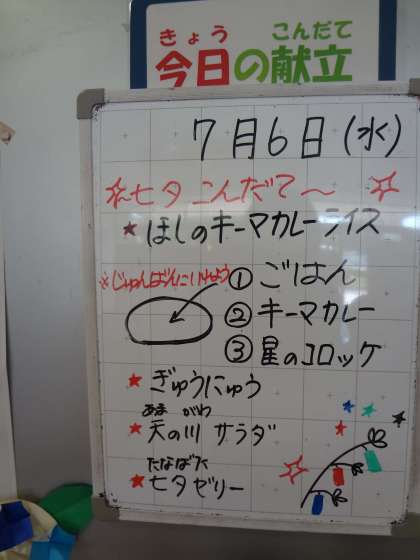 きょう こんだて
今日の献立
7月6日(水)
☆七夕こんだて〜☆
★ほしのキーマカレーライス
※じゅんばんにいれよう ①ごはん
②キーマカレー
③星のコロッケ
★ぎゅうにゅう
あま がわ
★天の川 サラダ
たなばた
★七夕ゼリー